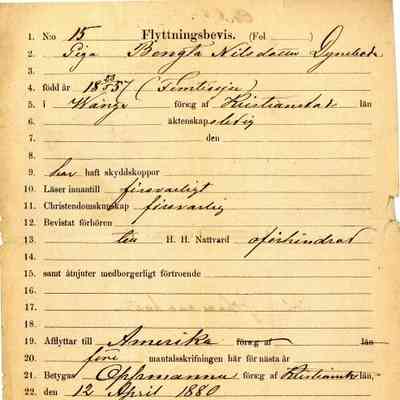 1. N:o 15 Flyttningsbevis. (Fol )
2. Piga Bengta Nilsdotter Dyneboda
3.
4. född år 18 23/5 57 (Femtiosju)
5. i Wånga förs:g af Kristianstad län
6. äktenskaps ledig
7. den
8.
9. har haft skyddskoppor
10. Läser innantill försvarligt
11. Christendomskunskap försvarlig
12. Bevistat förhören
13. till H. H. Nattvard oförhindrad
14.
15. samt åtnjuter medborgerligt förtroende
16.
17.
18.
19. Afflyttar till Amerika förs:g af län
20. före mantalsskrifningen här för nästa år
21. Betygas Oppmanna förs:g af Kristianst. län,
22. den 12 April 1880